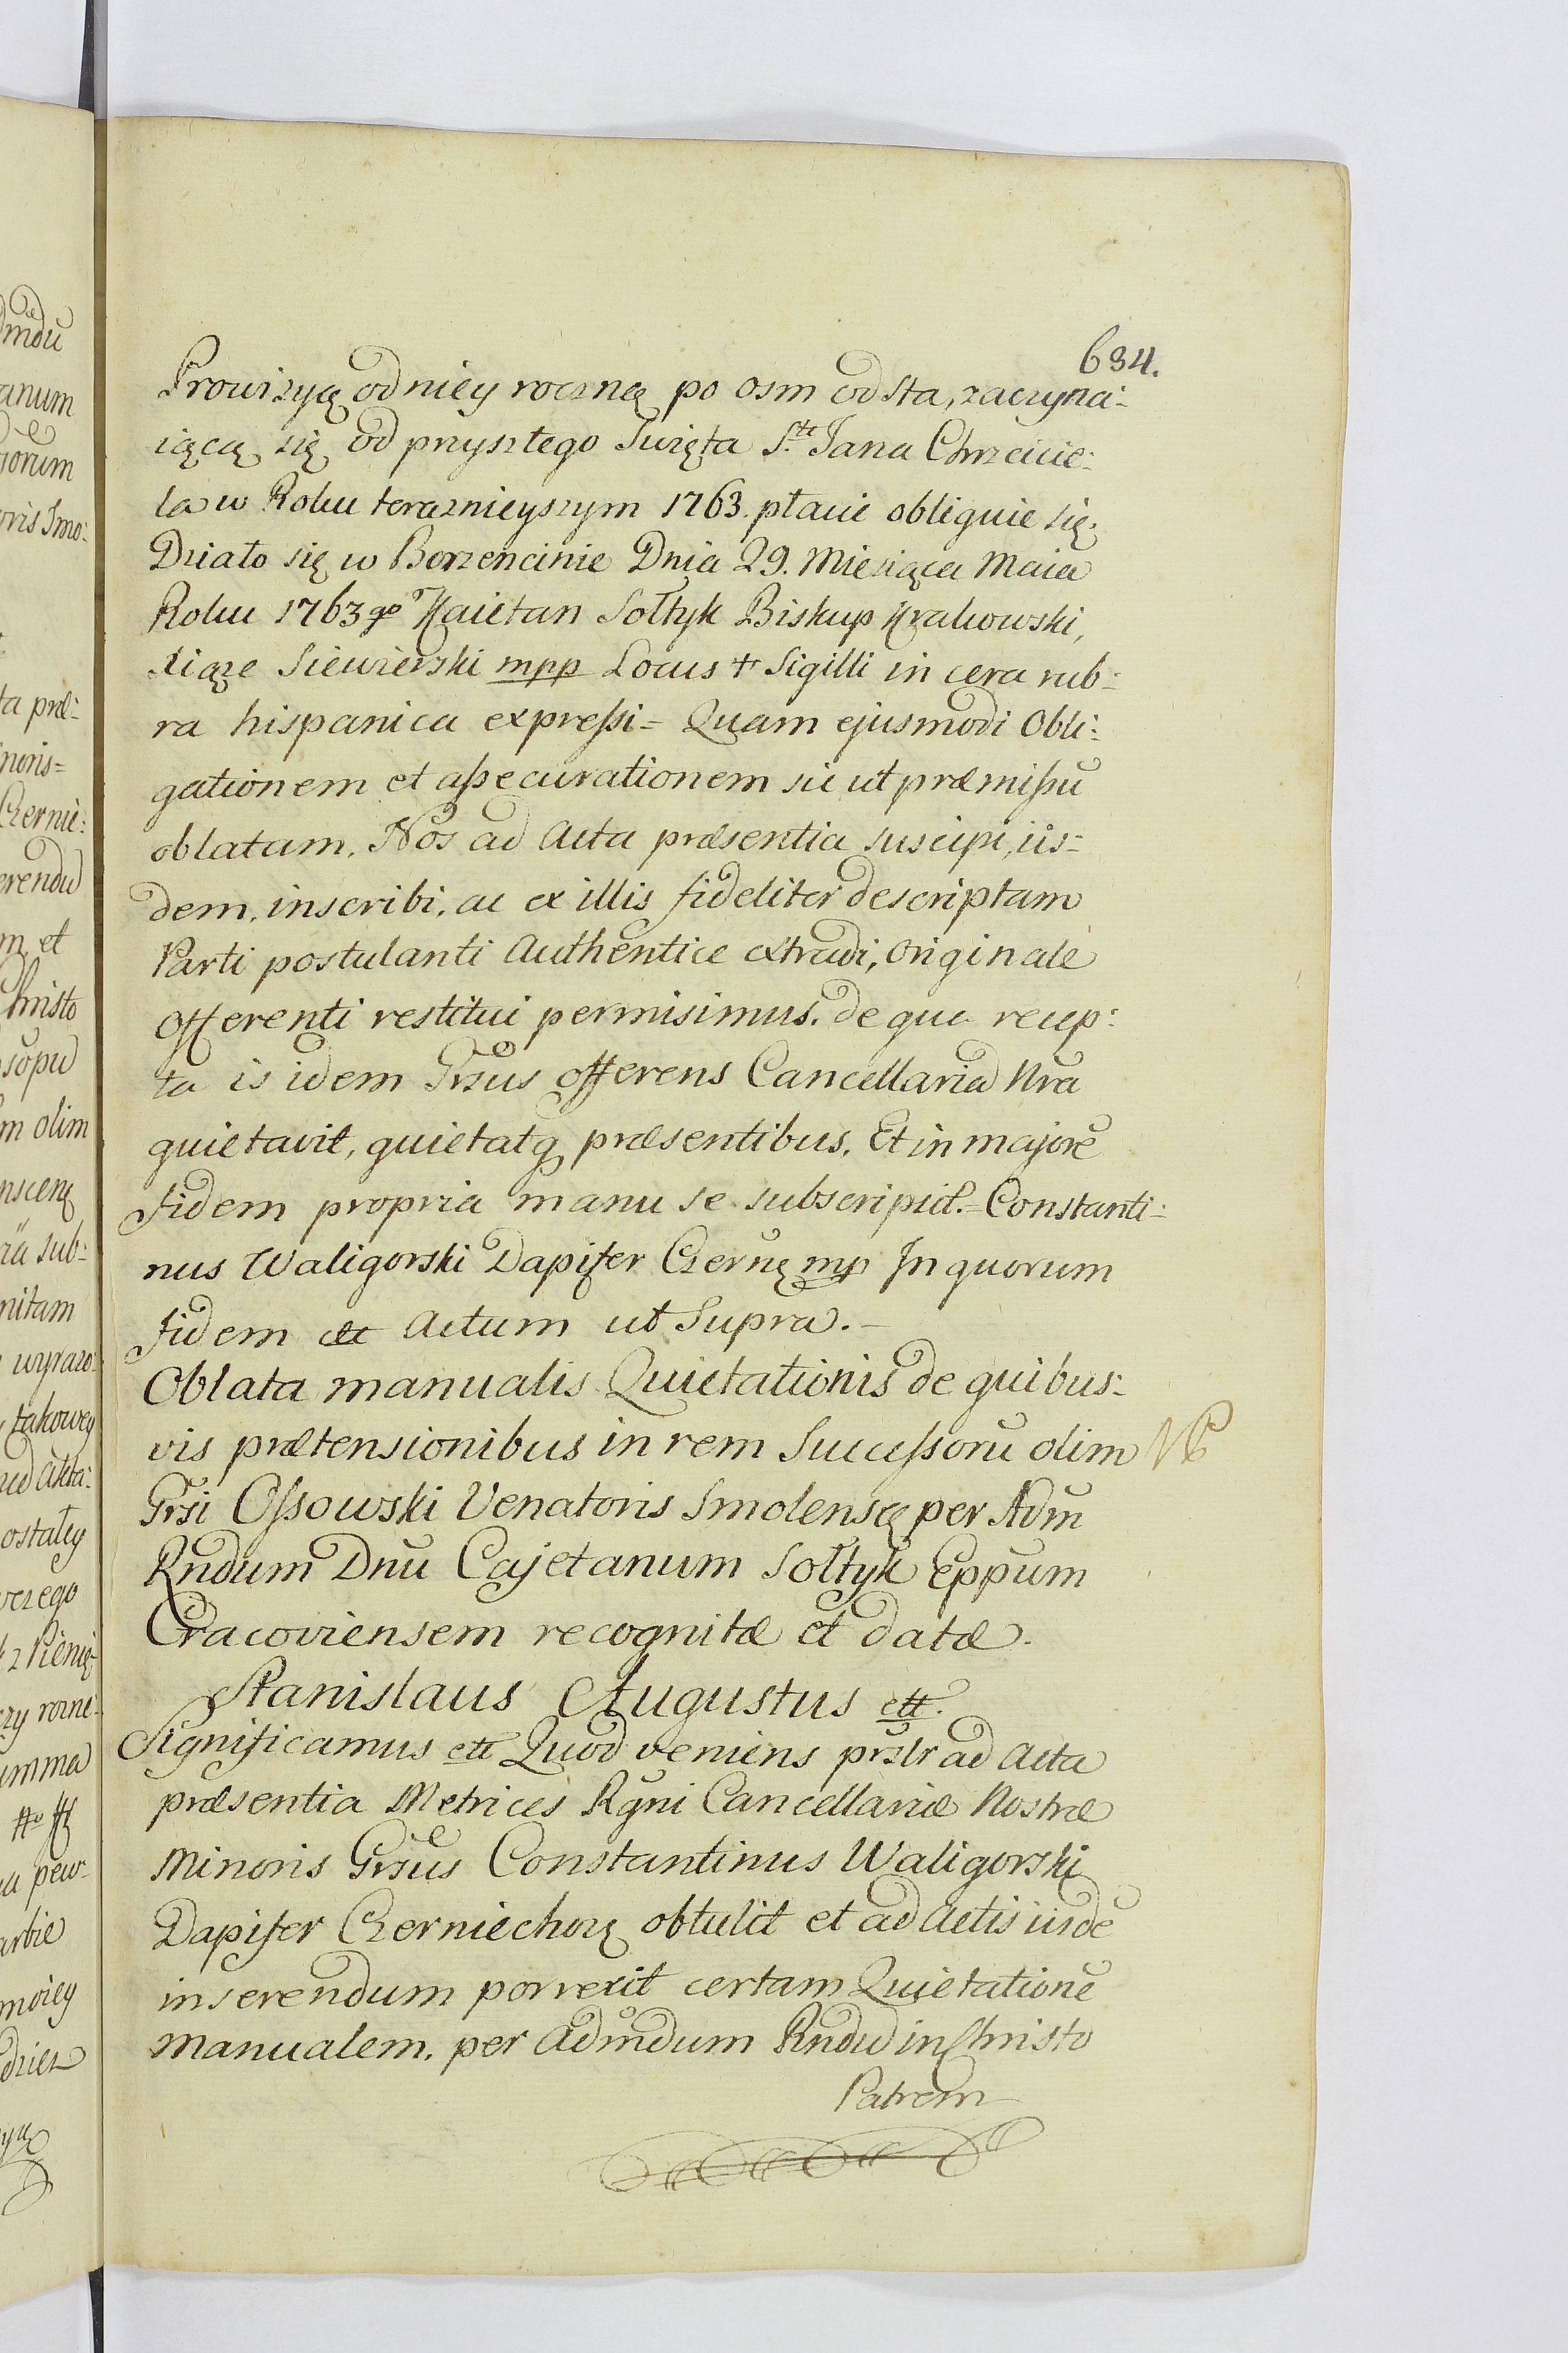 634.
Prowizyą od niey roczną po osm od sta, zaczyna:
iącą się od przyszłego Swięta S.te Jana Chrzcicie:
la w Roku teraznieyszym 1763. płacić obliguie się.
Działo się w Borzencinie Dnia 29. Miesiąca Maia
Roku 1763go Kaietan Sołtyk Biskup Krakowski,
Xiąże Siewierski mpp Locus + Sigilli in cera rub:
ra hispanica expressi = Quam ejusmodi Obli:
gationem et assecurationem sic ut præmissū
oblatam, Nos ad Acta præsentia suscipi, iis=
dem, inscribi, ac ex illis fideliter descriptam
Parti postulanti Authentice extradi, Originale
Offerenti restitui permisimus. de qua recep:
ta is idem Grsūs offerens Cancellariā Nrā
quietavit, quietatq præsentibus, Et in majorē
Fidem propria manu se subscripsit. = Constanti:
nus Waligorski Dapifer Czerńę mp In quorum
Fidem ett Actum ut Supra. –
Oblata manualis Quietationis de quibus:
vis prætensionibus in rem Successorū olim NB
Grsi Ossowski Venatoris Smolensę per Adm̄
Rndum Dnū Cajetanum Sołtyk Eppūm
Cracoviensem recognitæ et datæ.
Stanislaus Augustus ett.
Significamus ett Quod veniens prsltr ad Acta
præsentia Metrices Rgni Cancellariæ Nostræ
Minoris Grsūs Constantinus Waligorski
Dapifer Czerniechoę obtulit et ad Actis iisdē
inserendum porrexit certam Quietationē
Manualem, per Admdum Rndū in Christo
Patrem